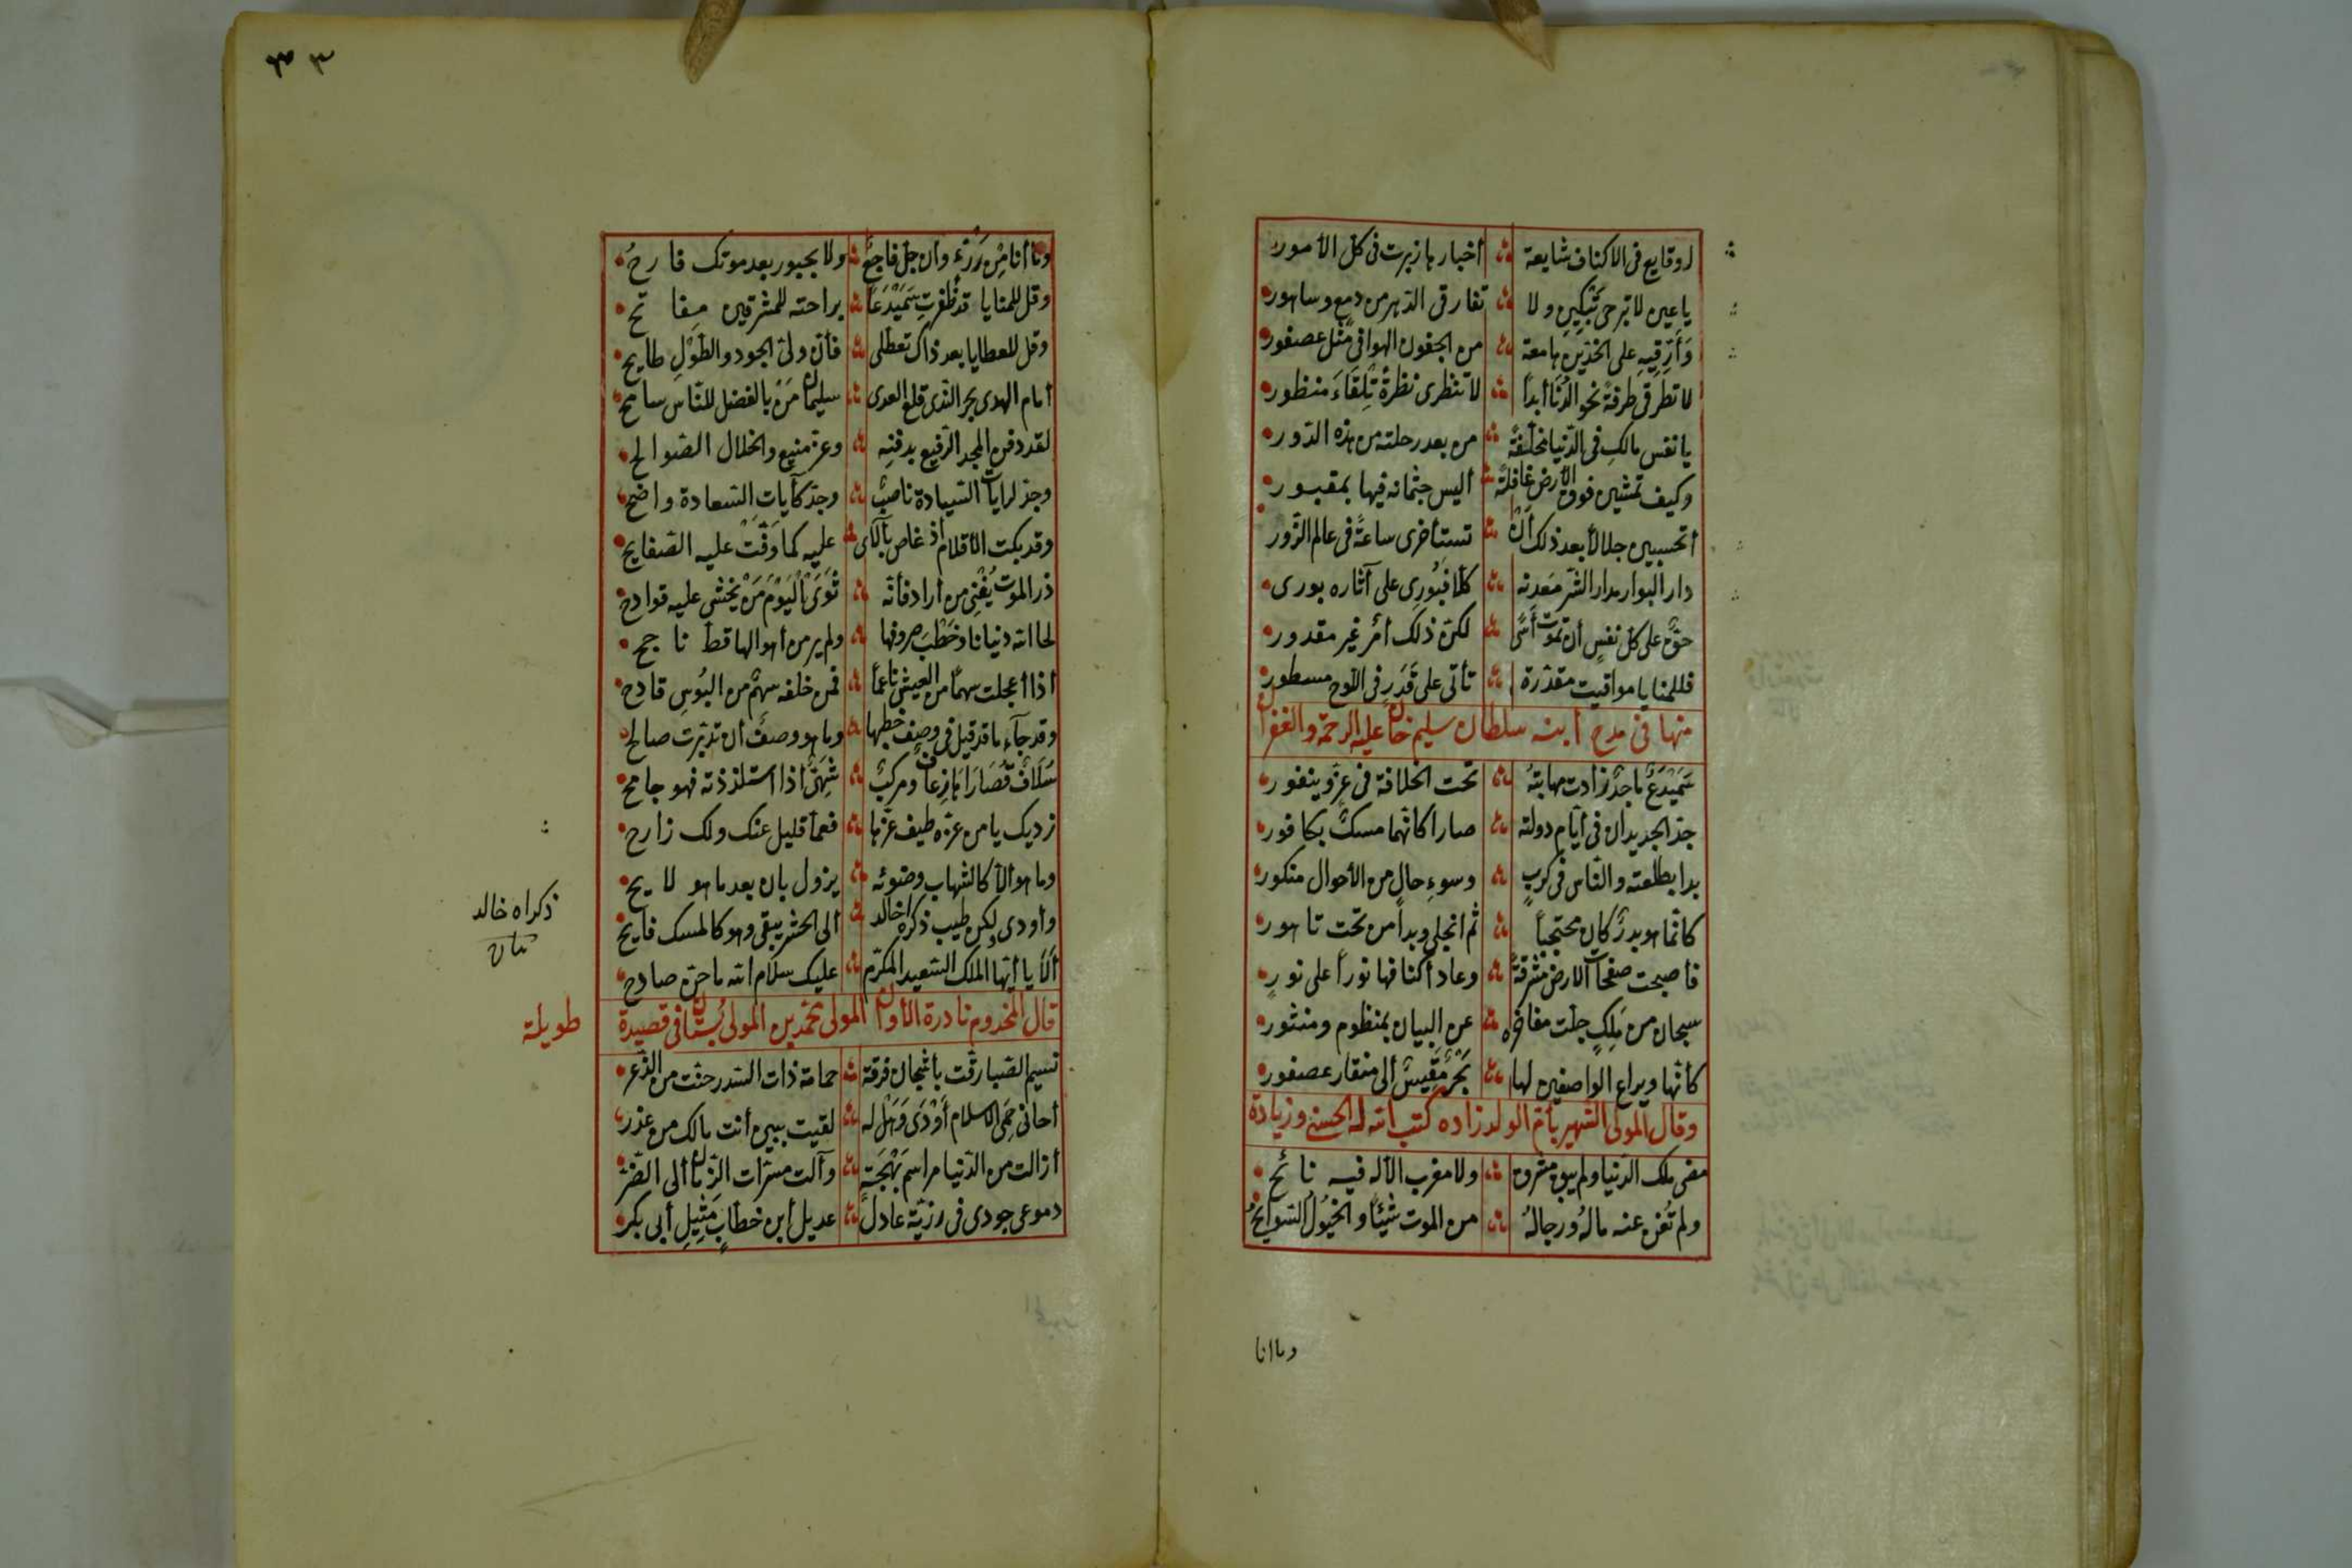 او قايع فى الاكناف شايعة أخبارها زبرت فى كل الأمور
يا عين لا تبرحى تبكين ولا تفارقى الدهر من دمع وساهور
وَأَرِقِيهِ على الخدّين هامعة من الجفون الهوافى مثل عصفور
لا تطرقى طرفةً نحو الدُنَا أبداً لا تنظرى نظرةً تِلقَاءَ منظور
يا نفس مالكِ فى الدّنيا مخلّفةً من بعد رحلته من هذه الدّور
وكيف تمشين فوق الأرض غافلةً أليس جثمانه فيها بمقبور
أتحسبين جلالاً بعد ذلك أَنْ تستأخرى ساعةً فى عالم الزّور
دار البوار مدار الشّر مَعدنه كلا فبُورى على آثاره بورى
حقٌّ على كلّ نفسٍ أن تموت أسًى لكنّ ذلك أمر غير مقدور
فللمنايا مواقيت مقدّرة تأتى على قَدَرٍ فى اللّوح مسطور
منها فى مدح ابنه سلطان سليم خان عليه الرحمة والغفران
سَمَيْدَعٌ ماجدٌ زادت مهابتهُ تحت الخلافة فى عزّ وينفور
جدّ الجديدان فى أيّام دولته صارا كأنّهما مسكٌ بكافور
بدا بطلعته والنّاس فى كربٍ وسوءِ حالٍ من الأحوال منكور
كأنّما هو بدرٌ كان محتجباً ثم انجلى وبدا من تحت تاهور
فأصبحت صفحات الارض مشرقةً وعاد أكنافها نوراً على نورٍ
سبحان من مَلِكٍ جلّت مفاخره عن البيان بمنظوم ومنثور
كأنّها ويراع الواصفين لها بَحْرٌ مَقيسٌ ألى منقار عصفور
وقال المولى الشّهير بأمّ الولد زاده كتب الله له الحسنى وزيادة
مضى ملك الدّنيا ولم يبق مشرق ولا مغرب الّا له فيه نائح
ولم تُغن عنه مالهُ ورجالهُ من الموت شيئاً والخيُولُ السّوابحُ
وما انا
٣٣
وما أنا مِنْ رُزْءٍ وأن جلّ فاجعٌ ولا بحبور بعد موتك فارحُ
وقل للمنايا قد ظفرتِ سَمَيْدَعاً براحته للمشرقين مفاتح
وقل للعطايا بعد ذاك تعطّلى فأن ولىّ الجود والطَّوْلِ طايح
أمام الهدى بحر النّدى قلع العدى سليمان مَنْ بالفضل للنّاس سامح
لقد دفن المجد الرّفيع بدفنه وعزّ منيع والخلال الصّوالح
وجذ لرايات السّيادة ناصبٌ وجذ كآيات السّعادة واضح
وقد بكت الأقلام اذ غاص بالآى عليه كما رقّتْ عليه الصّفايح
ذر الموت يُفْنِى من أراد فأنّه ثَوَى اَلْيَوْمَ مَنْ يخشى عليه قوادح
لحا الله دنيانا وخَطْبَ صروفها ولم ير من أهوالها قطّ ناجح
أذا أعجلت سهماً من العيش ناعماً فمن خلفه سهمٌ من البُوسِ قادح
وقد جآء ما قد قيل فى وصف خطبها وما هو وصفٌ أن تدبّرت صالح
سُلَافٌ قُصَارَاهَا زعافٌ ومركبٌ شَهِىٌّ اذا استلذذته فهو جامح
نزديك يا من عزّه طيف عزّها فعمّا قليل عنك ولك زارح
وما هو الّا كالشّهاب وضوئه يزول بان بعد ما هو لايح
وأودى ولكن طيب ذكراه خالد ألى الحشر يبقى وهو كالمسك فايح
ذكراه خالد
أَلَا يا أيّها الملك السّعيد المكرّم عليك سلام الله ما حنّ صادح
قال المخدوم نادرة الأوان المولى محمّد بن المولى بُستان فى قصيدة طويلة
نسيم الصّبا رقّت بأشجان فرقة حمامة ذات السّدر حنّت من الذّعر
أحانى حِمَى الاسلام أَوْدَى وَهَلْ له لقيت ببين أنت مالك من عذر
أزالت من الدّنيا مراسم بَهْجَةٍ وآلت مسرّات الزّمان ألى الضّرّ
دموعى جودى فى رزيّة عادلٍ عديل أبن خطّابٍ مَثِيلِ أبى بكر